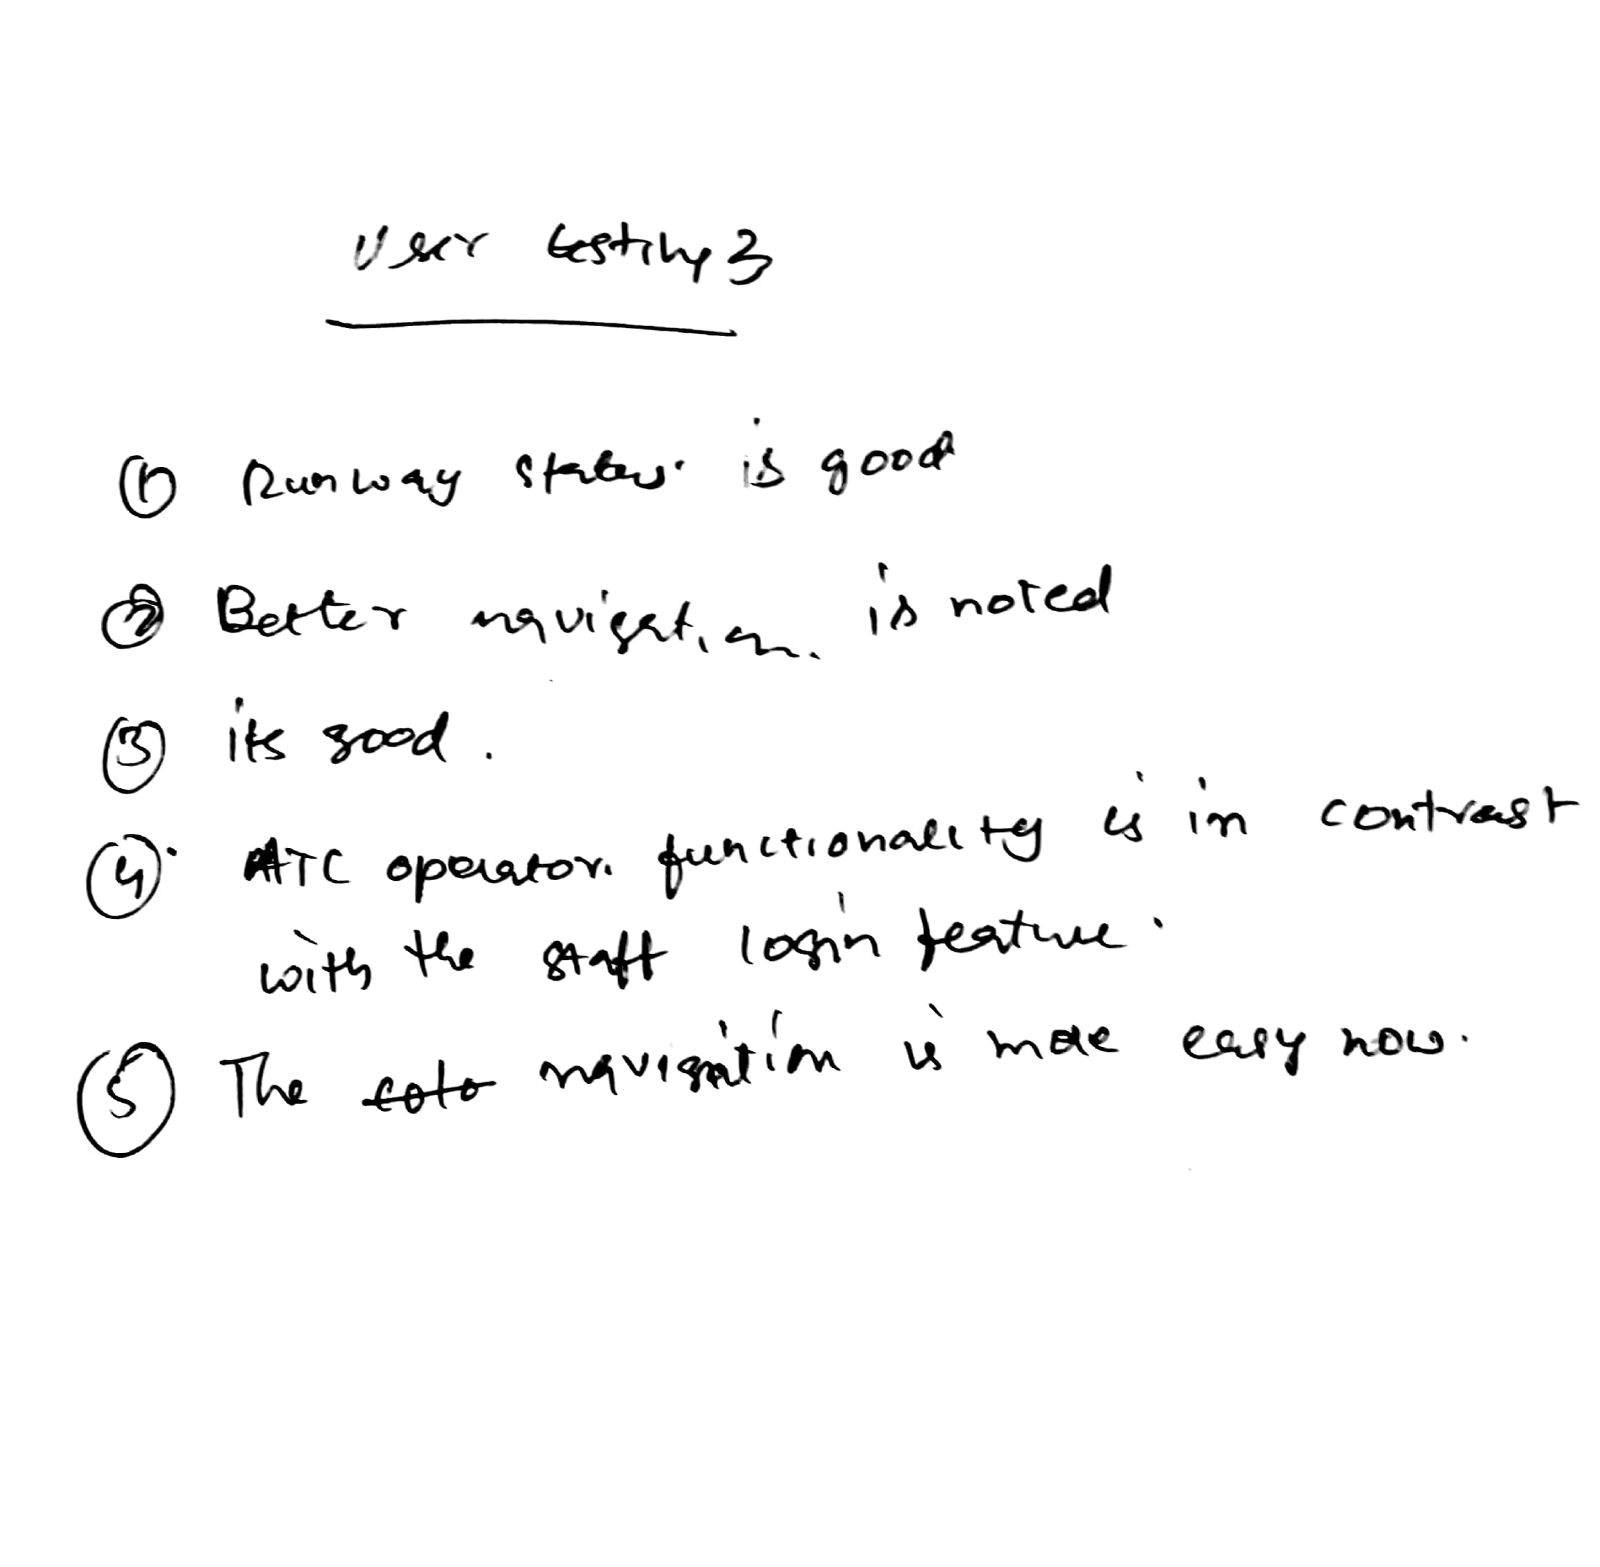 User testing 3
① Runway status is good
② Better navigation. is noted
③ its good.
④. ATC operator. functionality is in contrast
with the staff login feature.
⑤ The navigation is more easy now.